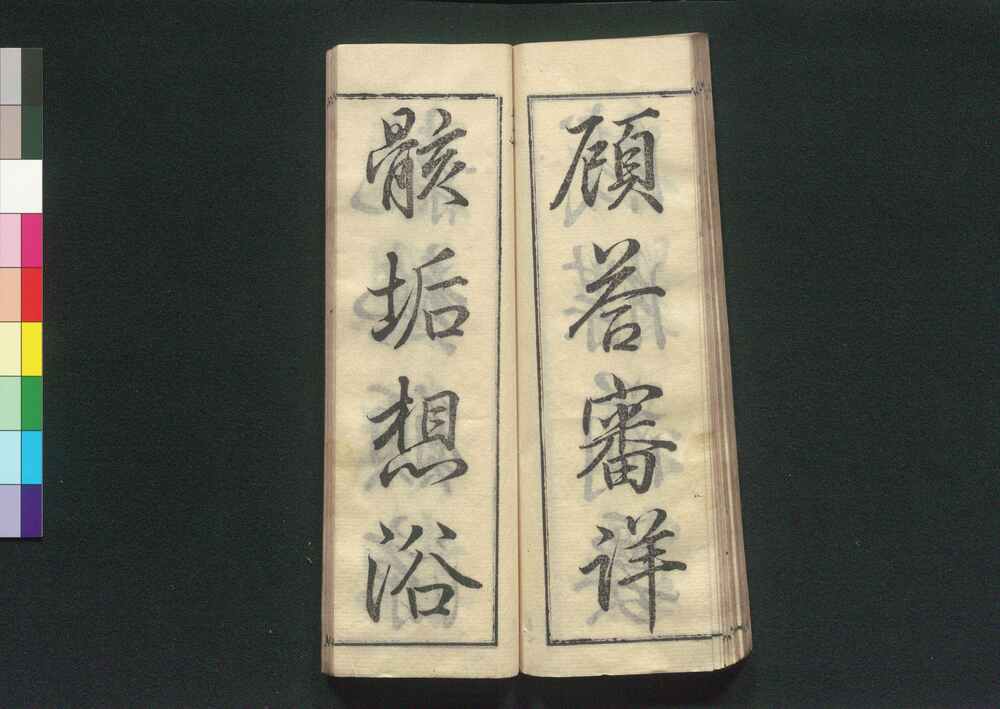 顧答審詳
骸垢想浴